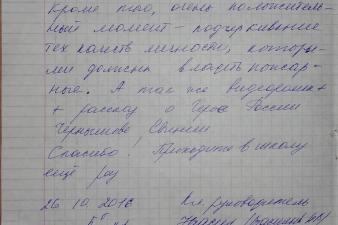 Кроме того, очень положитель-
ный момент - подчеркивание
тех качеств личности, которы-
ми должны владеть пожар-
ные. А так же видеоролик +
+ рассказ о Герое России
Чернышове Евгении
Спасибо! Приходите в школу
ещё раз
26.10.2016 Кл. руководитель
5